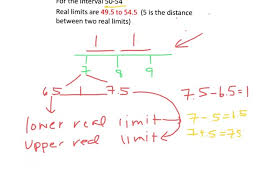 For the interval 50-54
Real limits are 49.5 to 54.5 (5 is the distance
between two real limits)
1 1
7 8 9
6.5 1 7.5
7.5-6.5=1
lower real limit
7-.5=6.5
Upper real limit
7+.5=7.5